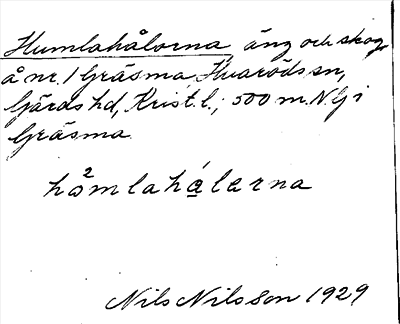 Humlahålorna äng och skog
å nr. 1 Gräsma, Hvaröds sn,
Gärds hd, Krist. l.; 500 m. N. G i
Gräsma.
hå²mlahálarna
Nils Nilsson 1929